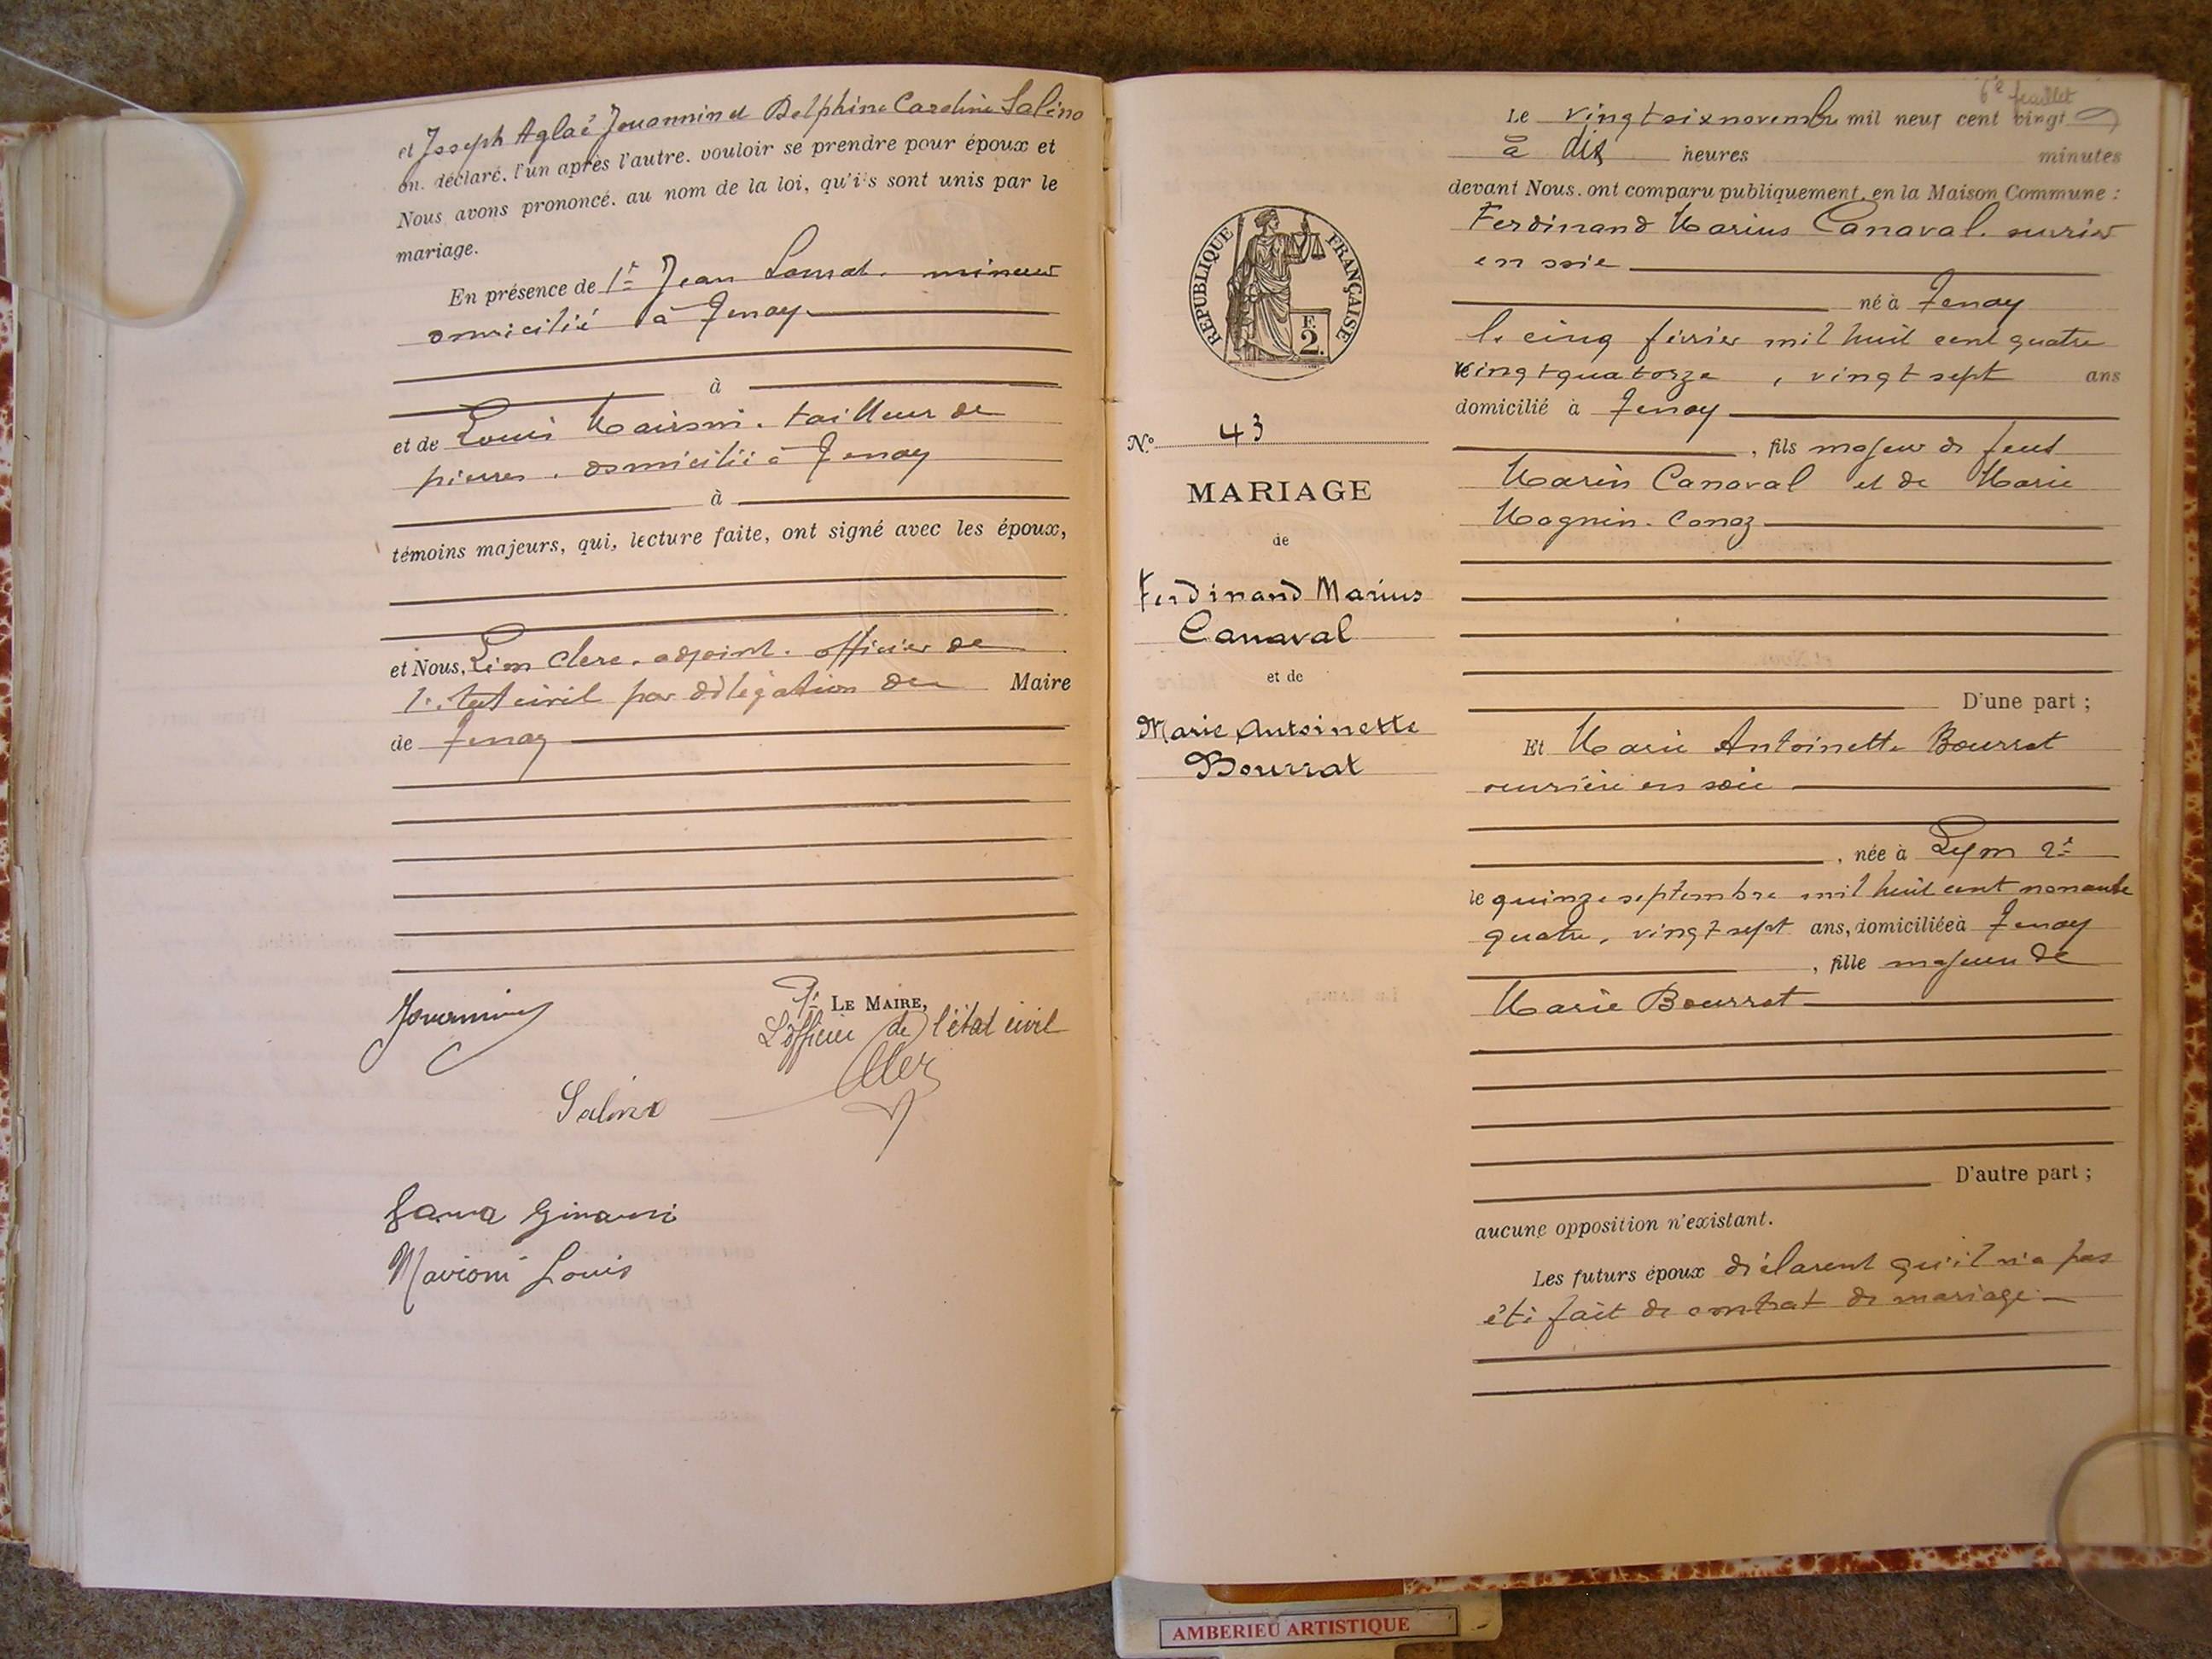 et Joseph Aglaé Jouannin et Delphine Caroline Salino
on. déclaré. l'un après l'autre. vouloir se prendre pour époux et
Nous avons prononcé. au nom de la loi, qu'i's sont unis par le
mariage.
En présence de 1º Jean mineur
domicilié à Tenay
à
et de Louis Mairom. tailleur de
pierres. domicilié à Tenay
à
témoins majeurs, qui, lecture faite, ont signé avec les époux,
et Nous, Léon Clerc. adjoint. officier de
l'état civil par délégation du Maire
de Tenay
Pr LE MAIRE,
L'officier de l'état civil
Jouannin
Clerc
Salino
Mavioni Louis
6e feuillet
Le vingt six novembre mil neuf cent vingt
à dix heures minutes
devant Nous. ont comparu publiquement, en la Maison Commune :
Ferdinand Marius Canaval. ouvrier
en soie
né à Tenay
le cinq février mil huit cent quatre
vingt quatorze , vingt sept ans
domicilié à Tenay
, fils majeur de feu
Marin Canaval et de Marie
Magnin. Canoz
D'une part ;
Et Marie Antoinette Bourrat
ouvrière en soie
, née à Lyon 2e
le quinze septembre mil huit cent nonante
quatre, vingt sept ans, domiciliée à Tenay
, fille majeure de
Marie Bourrat
D'autre part ;
aucune opposition n'existant.
Les futurs époux déclarent qu'il n'a pas
été fait de contrat de mariage
REPUBLIQUE FRANÇAISE
F.
2.
No 43
MARIAGE
de
Ferdinand Marius
Canaval
et de
Marie Antoinette
Bourrat
AMBERIEU ARTISTIQUE